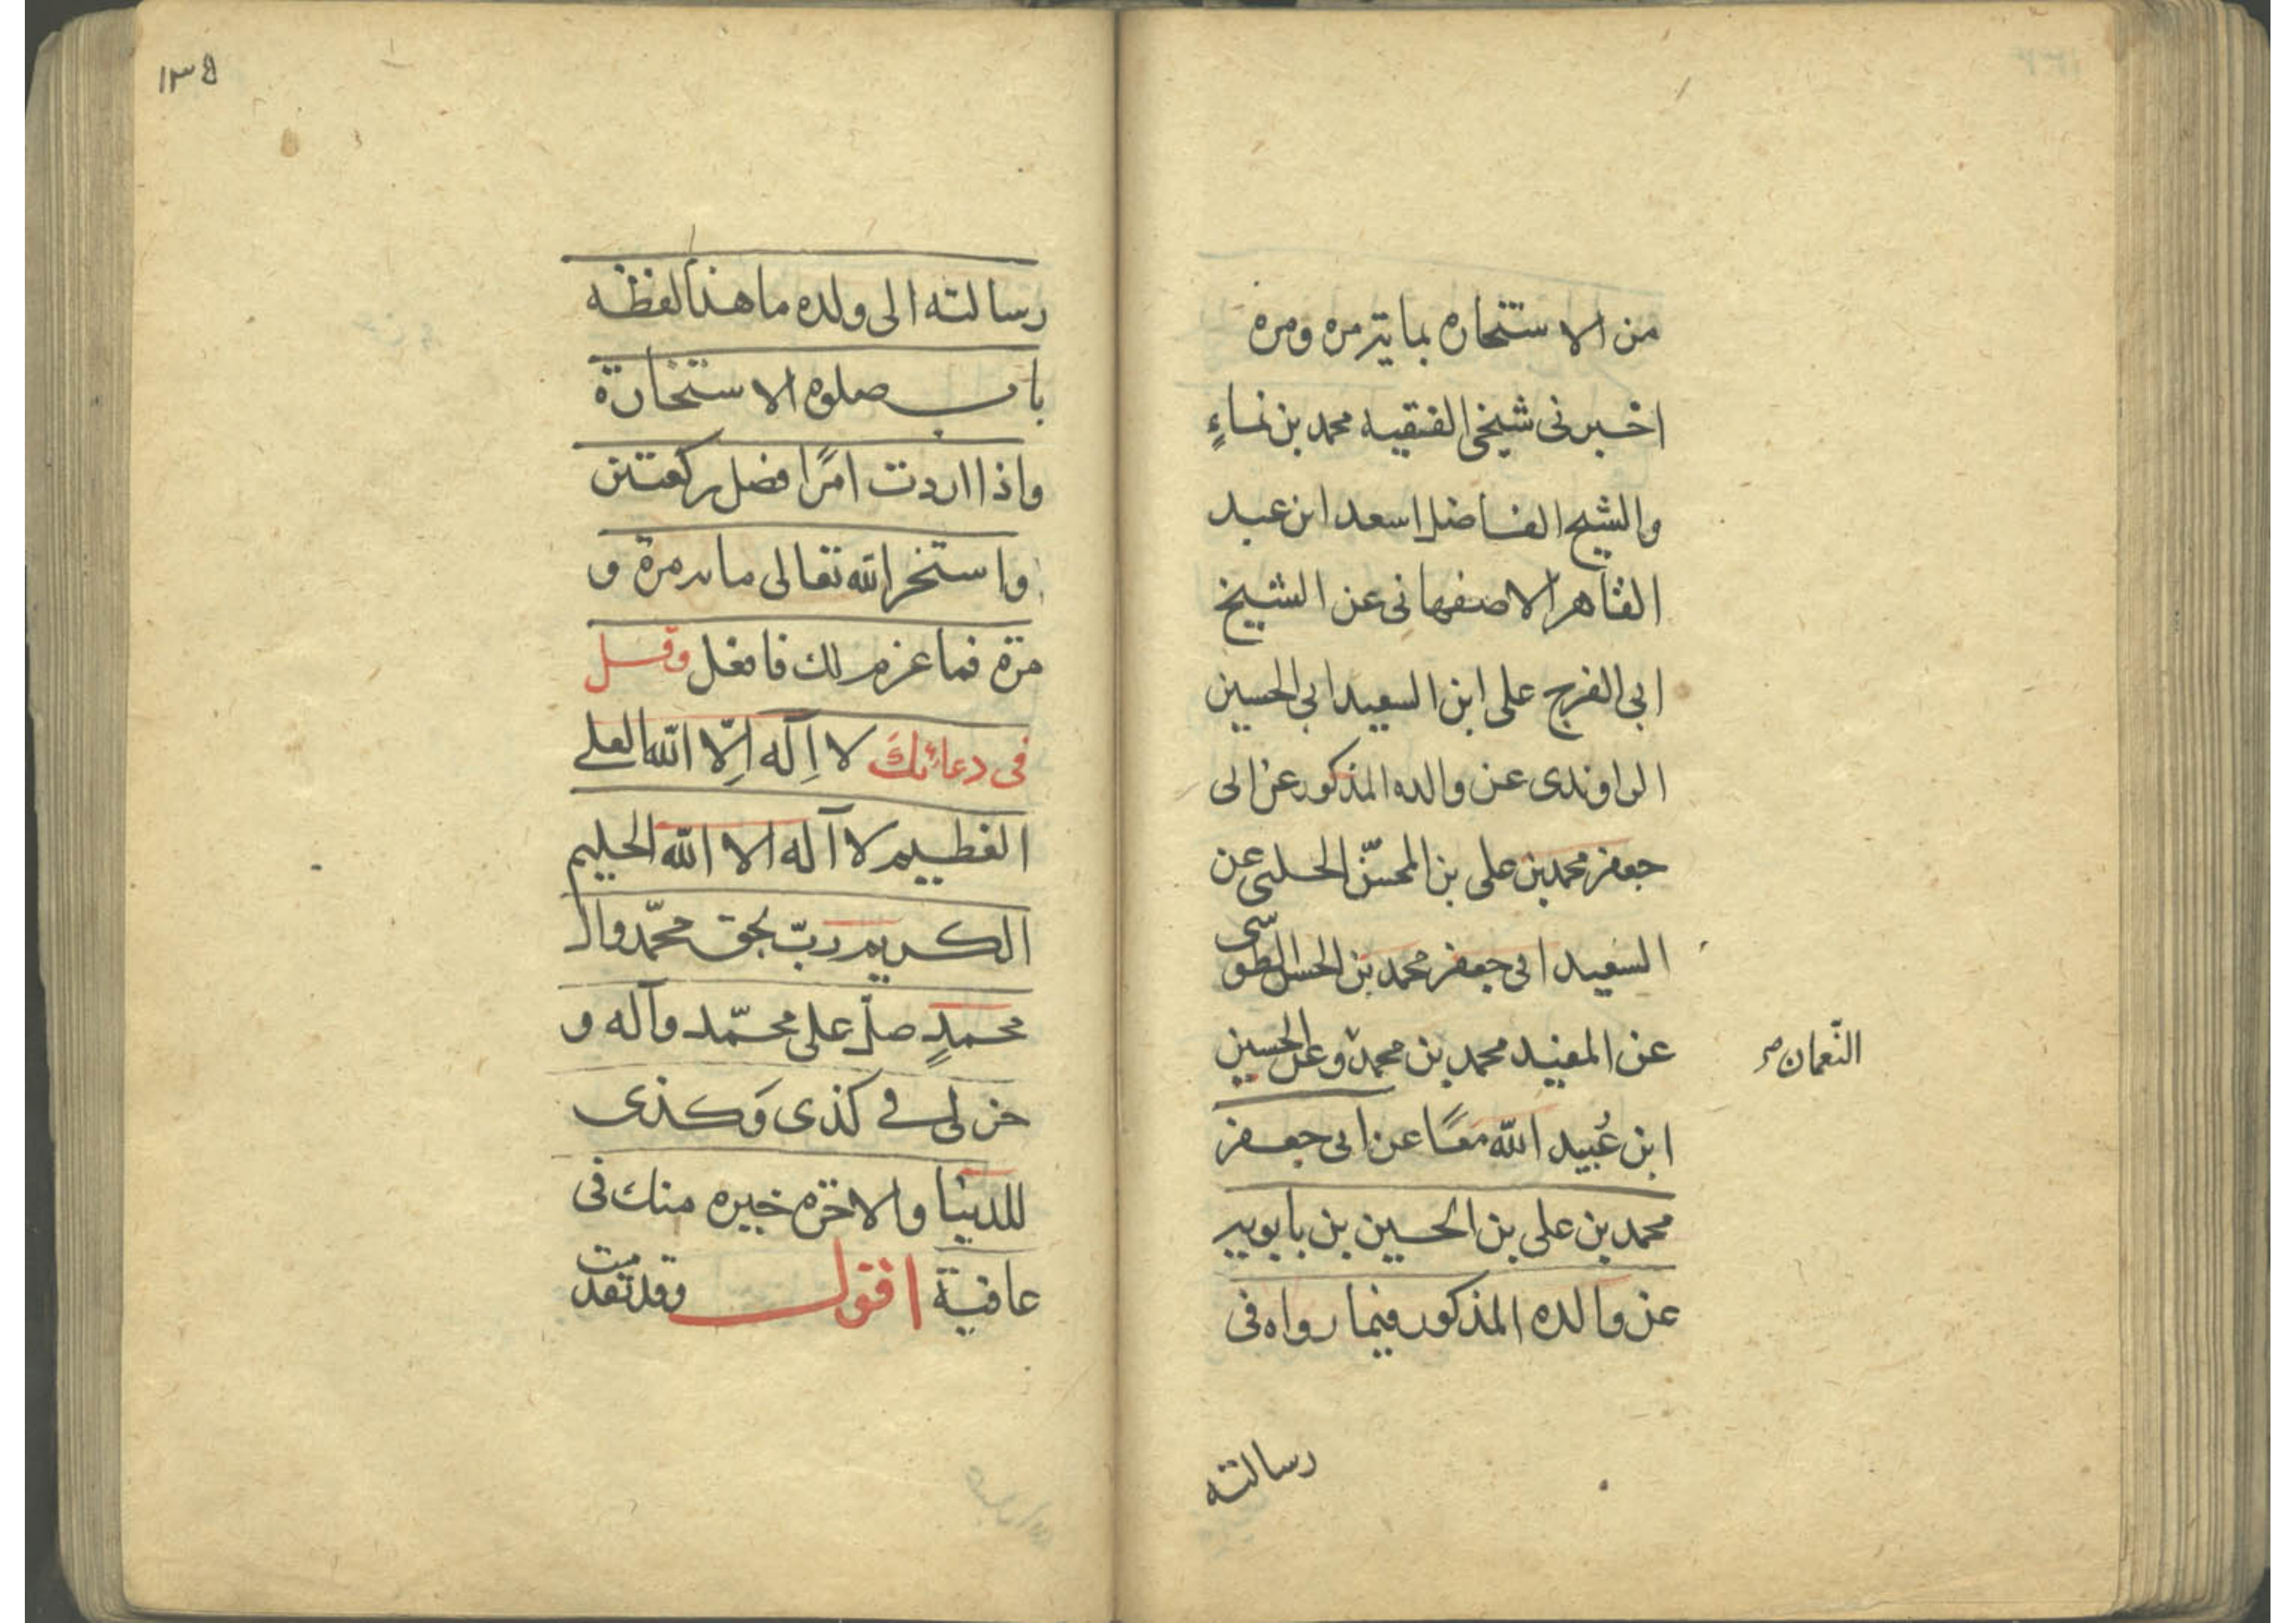 من الاستخاره بمايتر مره ومره
اخبرنى شيخى الفقيه محمد بن نماءٍ
والشيخ الفاضل اسعد ابن عبد
القاهر الاصفهانى عن الشيخ
ابى الفرج على ابن السعيد ابى الحسين
الراوندى عن والده المذكور عن ابى
جعفر محمد بن على بن المحسّن الحلبى عن
السعيد ابى جعفر محمد بن الحسن الطوسى
عن المفيد محمد بن محمد وعن الحسين
النّعمان صر
ابن عُبيد الله معًا عن ابى جعفر
محمد بن على بن الحسين بن بابويه
عن والده المذكور فيما رواه فى
رسالته
١٣٥
رسالته الى ولده ما هذا لفظه
باب صلوه الاستخارة
واذا اردت امرًا فصل ركعتين
واستخر الله تعالى مايه مرة و
مرّة فما عزم لك فافعل وقل
فى دعائك لا اِلٓه اِلّا اللّه العلى
العظيم لا آله الا اللّه الحليم
الكريم ربّ بحق محمّد وال
محمدٍ صلّ على محمّد وآله و
خر لى فى كذى وَكذى
للدنيا والاخرة خيره منك فى
عافية اقول وقد تقدمت